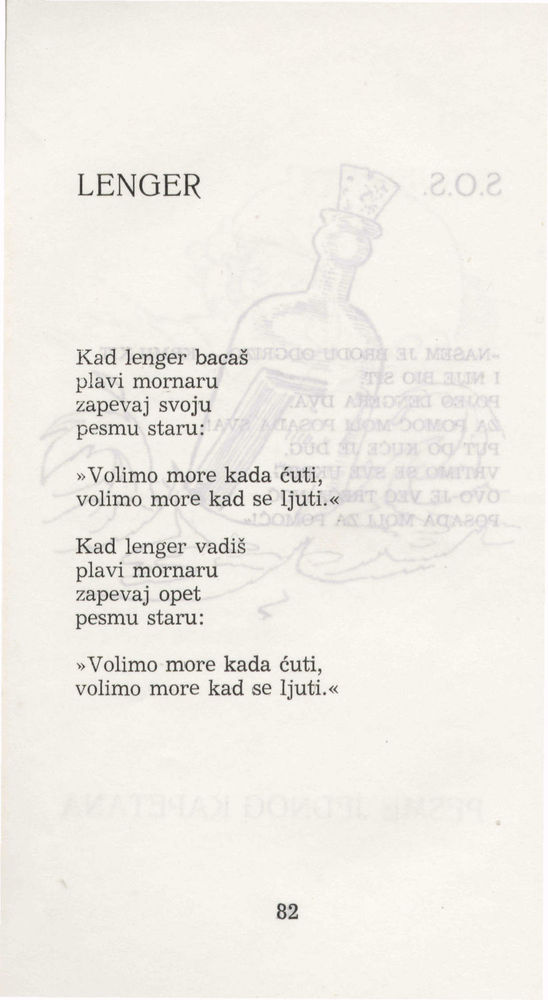 LENGER
Kad lenger bacaš
plavi mornaru
zapevaj svoju
pesmu staru:
»Volimo more kada ćuti,
volimo more kad se ljuti.«
Kad lenger vadiš
plavi mornaru
zapevaj opet
pesmu staru:
»Volimo more kada ćuti,
volimo more kad se ljuti.«
82